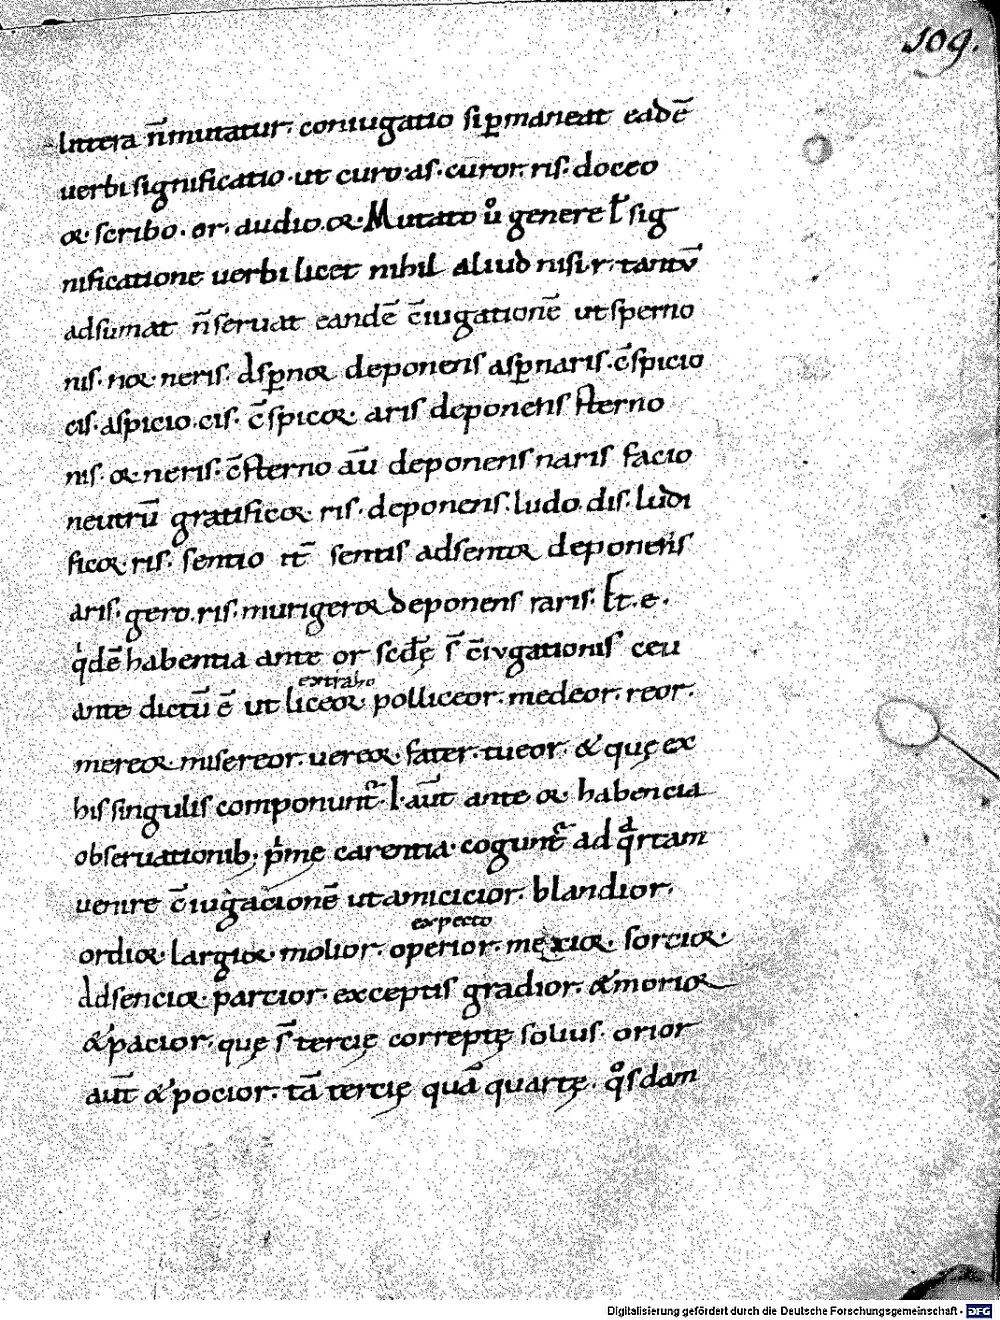 109.
littera n̄mutatur. coniugatio si ꝑmaneat eadē
uerbi significatio. ut curo. as. curor. ris. doceo
or. scribo. or. audio. or. Mutato ů genere ł sig
nificatione uerbi licet nihil aliud nisi. r. tantū
adsumat n̄ seruat eandē c̄iugationē ut sperno
nis. nor neris. dſꝑnor deponens asꝑnaris. c̄spicio
cis. aspicio. cis. c̄spicor. aris deponens sterno
nis. or. neris. c̄sterno aū deponens naris facio
neutrū gratificor ris. deponens. ludo. dis. ludi
ficor. ris. sentio it̄ sentis adsentor deponens
aris. gero. ris. murigeror deponens raris. Et. e.
q'dē habentia ante or scdę s̄ c̄iugationis ceu
extraho
ante dictū ē ut liceor polliceor. medeor. reor.
mereor misereor. uereor. fateor. tueor. & quę ex
his singulis componunt᷑. I. aūt ante or habencia
obseruationib; p'me carentia. cogunt᷑ ad qͣrtam
uenire c̄iugacionē ut amicicior. blandior.
expecto
ordior largior molior. operior. mexior. sorcior.
Adsencior. parcior. exceptis gradior. & morior
& pacior. quę s̄ tercię correptę solius. orior
aūt & pocior. tā tercię quā quartę. q̊sdam
Digitalisierung gefördert durch die Deutsche Forschungsgemeinschaft - DFG